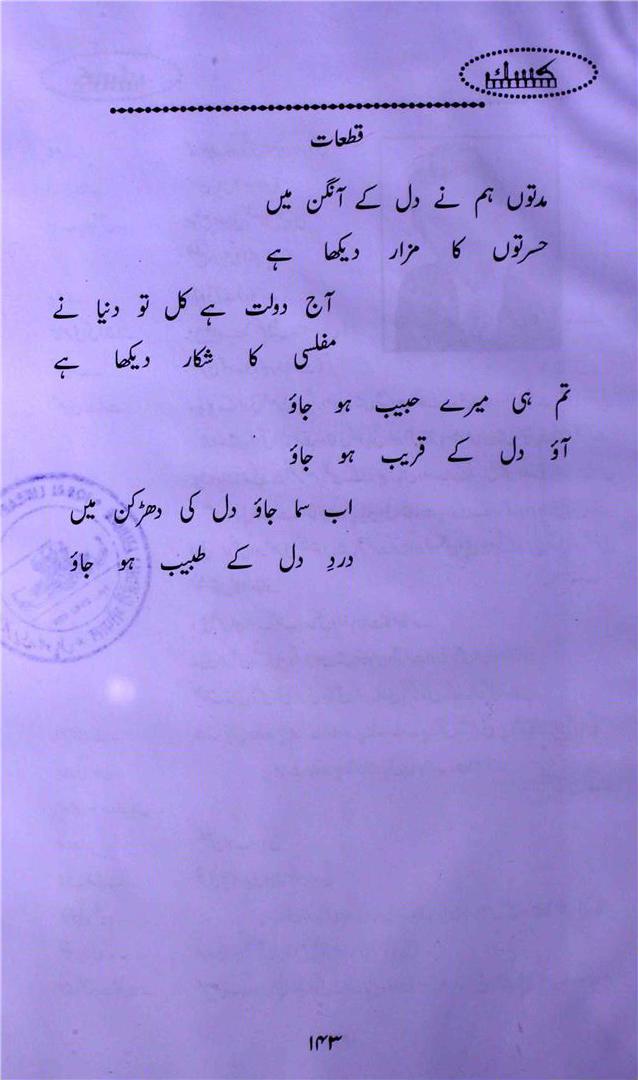 کسک
قطعات
مدتوں ہم نے دل کے آنگن میں
حسرتوں کا مزار دیکھا ہے
آج دولت ہے کل تو دنیا نے
مفلسی کا شکار دیکھا ہے
تم ہی میرے حبیب ہو جاؤ
آؤ دل کے قریب ہو جاؤ
اب سما جاؤ دل کی دھڑکن میں
دردِ دل کے طبیب ہو جاؤ
۱۴۳